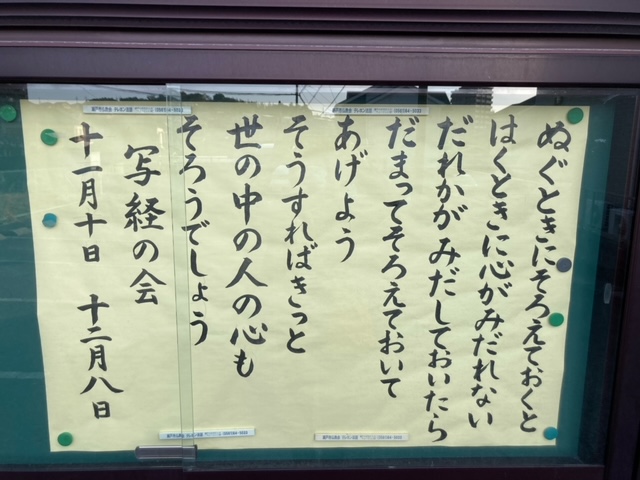 ぬぐときにそろえておくと
はくときに心がみだれない
だれかがみだしておいたら
だまってそろえておいて
あげよう
そうすればきっと
世の中の人の心も
そろうでしょう
写経の会
十一月十日 十二月八日